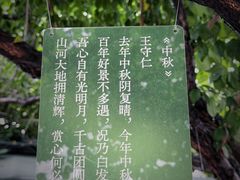 《中秋》
王守仁
去年中秋阴复晴，今年中秋
百年好景不多遇，况乃白发
吾心自有光明月，千古团圆
山河大地拥清辉，赏心何必